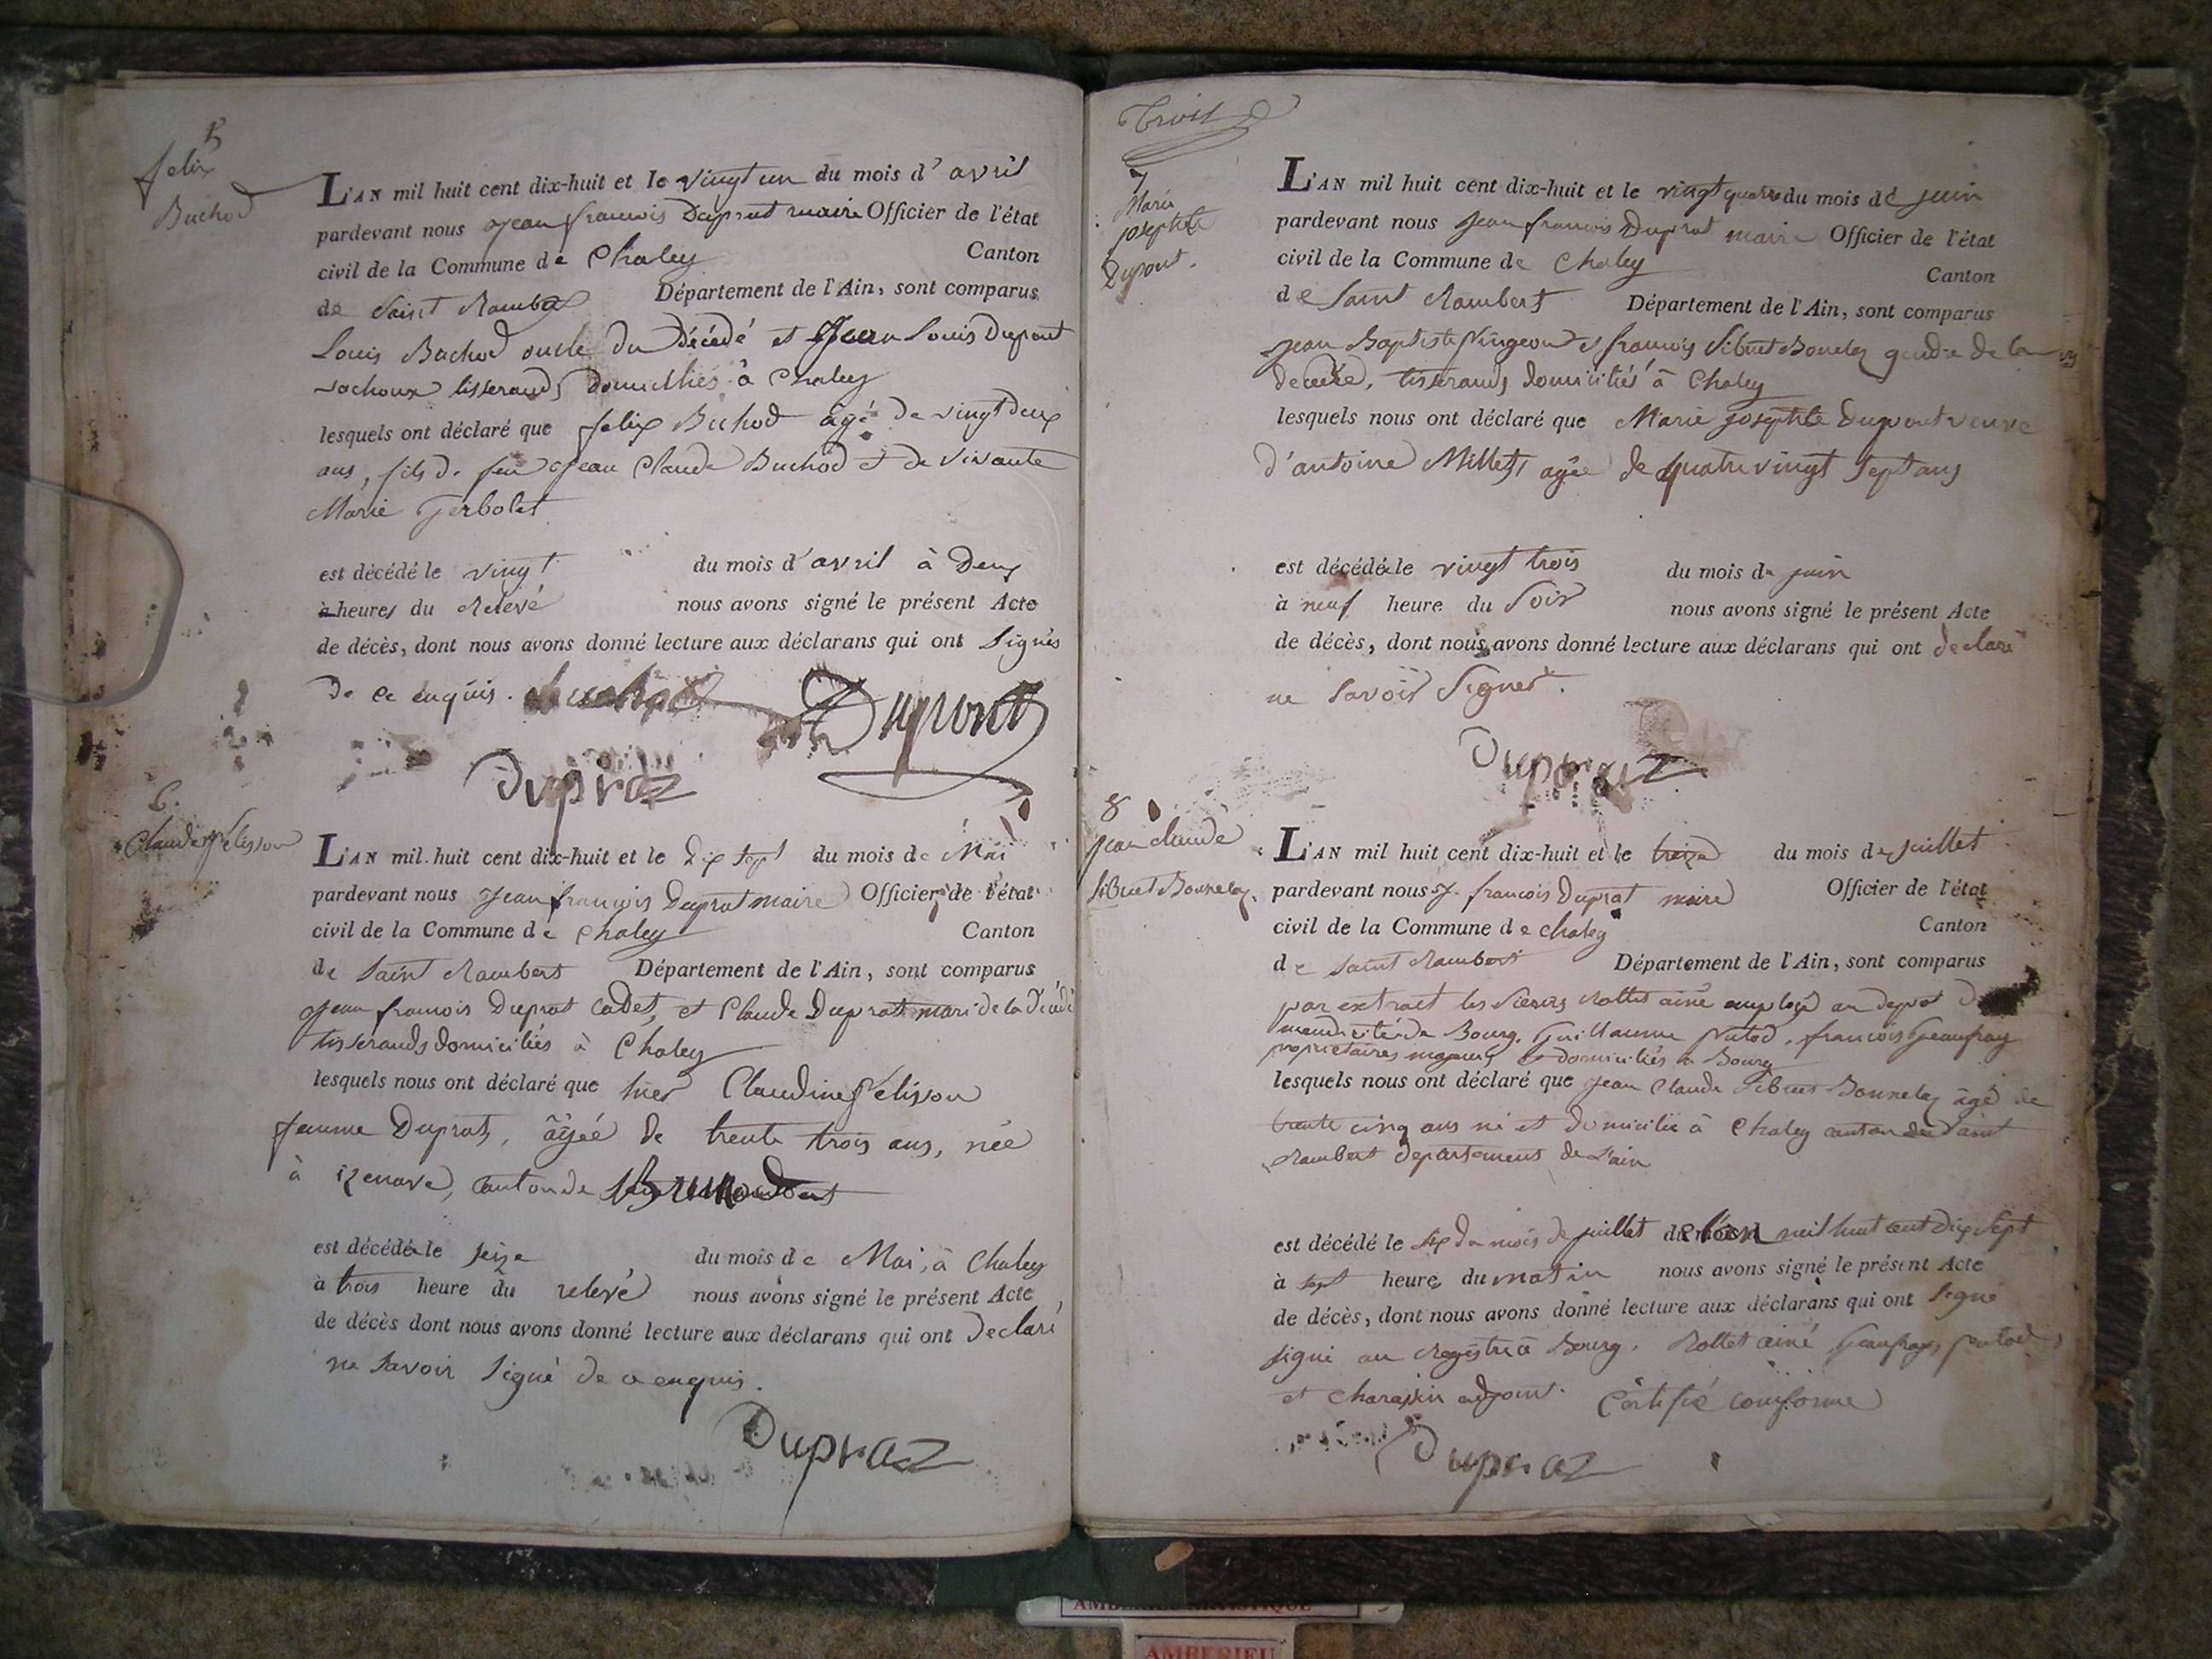 5
felix
Buchod
L'AN mil huit cent dix-huit et le vingt un du mois d'avril
pardevant nous Jean françois Duprat maire Officier de l'état
civil de la Commune de Chaley Canton
de Saint Rambert Département de l'Ain, sont comparus
Louis Buchod oncle du décédé et Jean Louis Dupont
tisserands domiciliés à Chaley
lesquels ont déclaré que felix Buchod âgé de vingt deux
ans, fils de feu Jean Claude Buchod et de vivante
Marie Gerbolet
est décédé le vingt du mois d'avril à deux
à heures du relevé nous avons signé le présent Acte
de décès, dont nous avons donné lecture aux déclarans qui ont signés
de ce enquis. Dupont
Dupraz
6.
Claudine pélisson
L'AN mil huit cent dix-huit et le dix sept du mois de Mai
pardevant nous Jean françois Duprat maire Officier de l'état
civil de la Commune de Chaley Canton
de Saint Rambert Département de l'Ain, sont comparus
Jean françois Duprat Cadet, et Claude Duprat mari de la décédé
tisserands domiciliés à Chaley
lesquels nous ont déclaré que hier Claudine Pélisson
femme Duprat, âgée de trente trois ans, née
à Izenave, canton de
est décédée le seize du mois de Mai, à Chaley
à trois heure du relevé nous avons signé le présent Acte
de décès dont nous avons donné lecture aux déclarans qui ont declaré
ne savoir signé de ce enquis.
Dupraz
Trois
7
Marie
josephte
Dupont.
L'AN mil huit cent dix-huit et le vingt quatre du mois de juin
pardevant nous Jean françois Duprat maire Officier de l'état
civil de la Commune de Chaley Canton
de Saint Rambert Département de l'Ain, sont comparus
Jean Baptiste Pingeon et françois Sibuet Bonelez gendre de la
decedée, tisserands domiciliés à Chaley
lesquels nous ont déclaré que Marie josephte Dupont veuve
d'antoine Millet, agée de quatre vingt sept ans
est décédée le vingt trois du mois de juin
à neuf heure du soir nous avons signé le présent Acte
de décès, dont nous avons donné lecture aux déclarans qui ont declaré
ne savoir signer.
Dupraz
8
jean claude
sibuet Bonnelez.
L'AN mil huit cent dix-huit et le treize du mois de juillet
pardevant nous J. françois Duprat maire Officier de l'état
civil de la Commune de chaley Canton
de Saint Rambert Département de l'Ain, sont comparus
par extrait les sieurs Rollet ainé employé au depot de
mendicité de Bourg, Guillaume Putod, françois Geaufray
proprietaires majeurs et domiciliés à Bourg
lesquels nous ont déclaré que Jean Claude Sibuet Bonnelez âgé de
trente cinq ans né et domicilié à Chaley canton de Saint
Rambert departement de l'ain
est décédé le six du mois de juillet de l'an mil huit cent dix sept
à sept heures du matin nous avons signé le présent Acte
de décès, dont nous avons donné lecture aux déclarans qui ont signé
signé au Registre à Bourg. Rollet ainé, Geaufray, putod
et Charassin adjoint. Certifié conforme
Dupraz
AMBERIEU